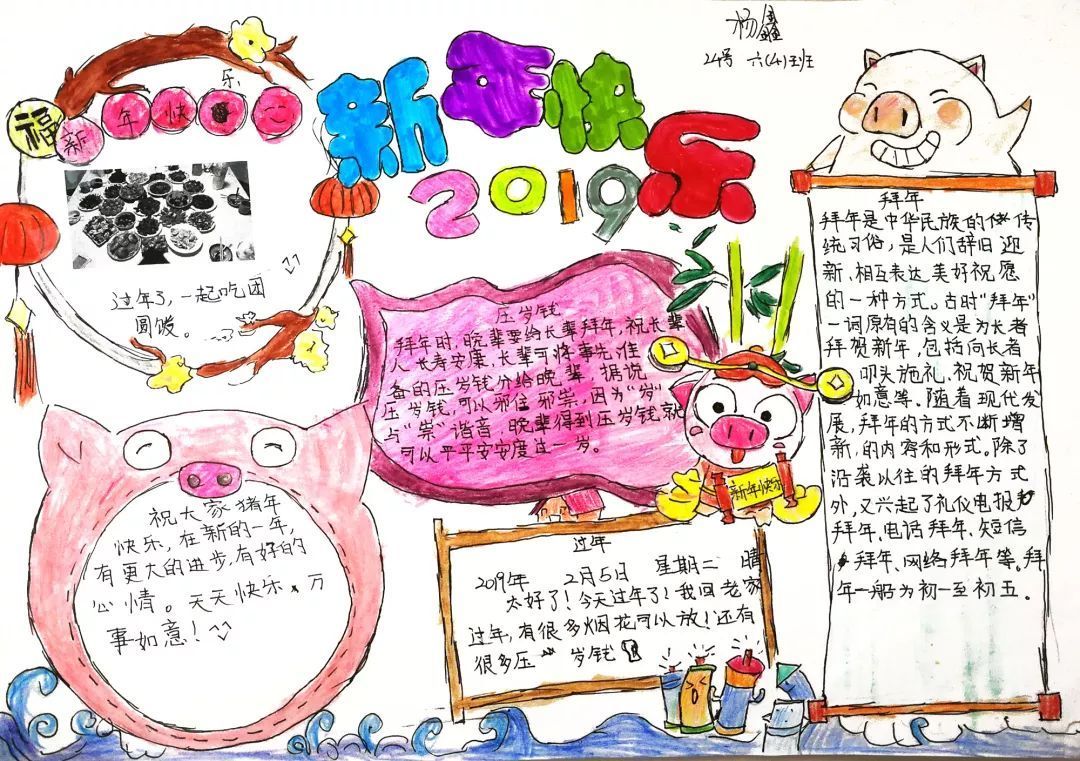 杨鑫
24号 六(4)班
新年快乐
2019
福
新年快乐
过年了,一起吃团
圆饭。
压岁钱
拜年时,晚辈要给长辈拜年,祝长辈
人长寿安康,长辈可将事先准
备的压岁钱分给晚辈,据说
压岁钱,可以邪住邪祟,因为"岁"
与"祟"谐音,晚辈得到压岁钱就
可以平平安安度过一岁。
新年快乐
拜年
拜年是中华民族的传
统习俗,是人们辞旧迎
新、相互表达美好祝愿
的一种方式。古时"拜年"
一词原有的含义是为长者
拜贺新年,包括向长者
叩头施礼、祝贺新年
如意等。随着现代发
展,拜年的方式不断增
新,的内容和形式。除了
沿袭以往的拜年方式
外,又兴起了礼仪电报
拜年、电话拜年、短信
拜年、网络拜年等。拜
年一般为初一至初五.
祝大家猪年
快乐,在新的一年,
有更大的进步,有好的
心情。天天快乐、万
事如意!
过年
2019年 2月5日 星期二 晴
太好了!今天过年了!我回老家
过年,有很多烟花可以放!还有
很多压岁钱